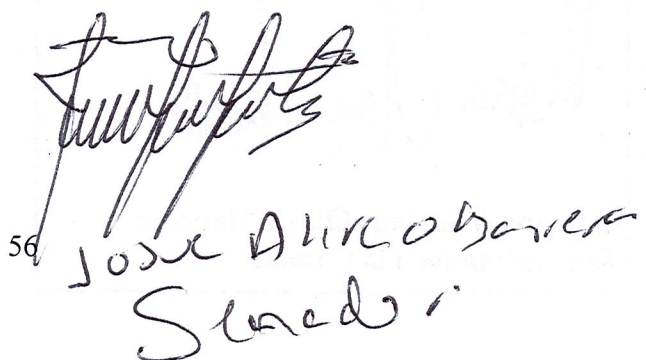 56
Josue Alirio Barrera
Senador